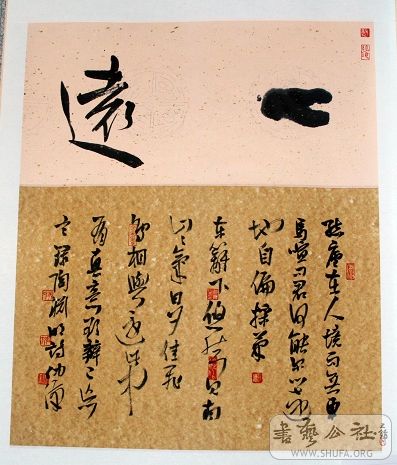 心遠
結廬在人境而無車
馬喧問君何能尔心遠
地自偏採菊
東籬下悠然見南
山山氣日夕佳飛
鳥相與還此中
有真意欲辯已忘
言錄陶淵明詩
書藝公社
WWW.SHUFA.ORG